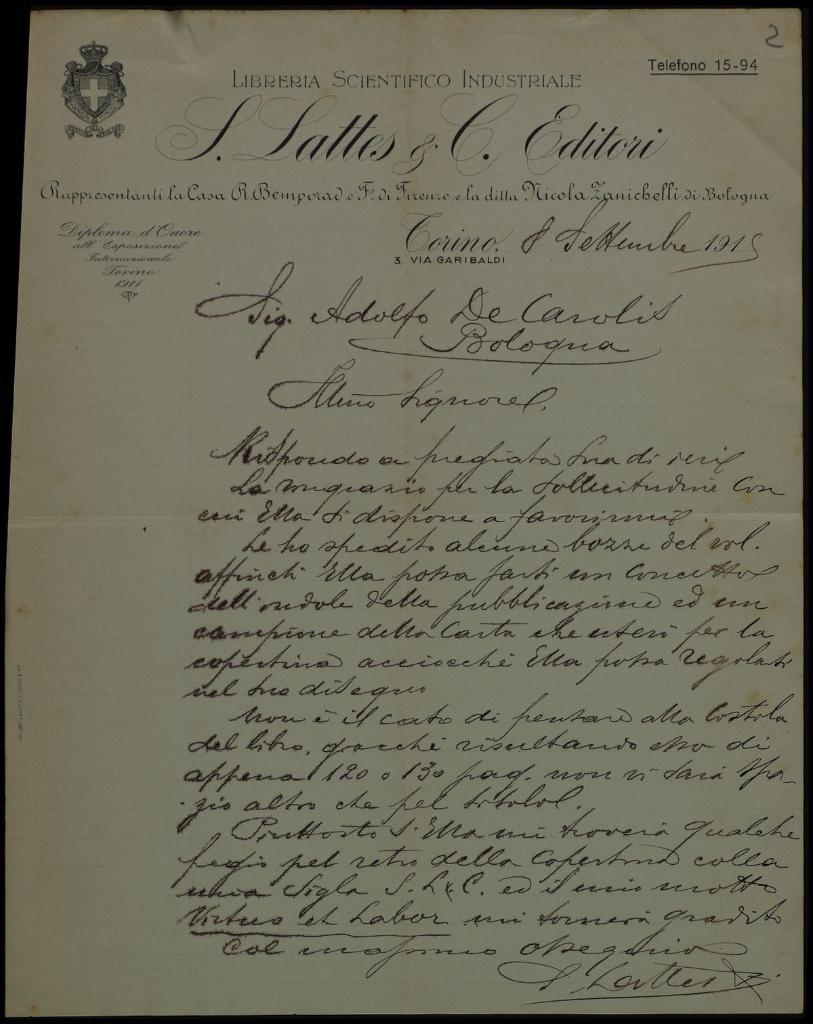 2
Telefono 15-94
LIBRERIA SCIENTIFICO INDUSTRIALE
S. Lattes & C. Editori
Rappresentanti la Casa R. Bemporad e F.º di Firenze e la ditta Nicola Zanichelli di Bologna
Diploma d'Onore
all'Esposizione
Internazionale
Torino
1911
Torino, 8 Settembre 1915
3, VIA GARIBALDI
Sig. Adolfo De Carolis
Bologna
Illmo Signore,
Rispondo a pregiata Sua di ieri
La ringrazio per la sollecitudine con
cui Ella si dispone a favorirmi.
Le ho spedito alcune bozze del vol.
affinchè Ella possa farsi un concetto
dell'indole della pubblicazione ed un
campione della carta che userò per la
copertina acciocchè Ella possa regolarsi
nel suo disegno
Non è il caso di pensare alla costola
del libro, giacchè risultando esso di
appena 120 o 130 pag. non vi sarà spa-
zio altro che pel titolo.
Piuttosto s'Ella mi troverà qualche
fregio pel retro della copertina colla
mia sigla S. L. & C. ed il mio motto
Virtus et Labor mi tornerà gradito
Col massimo ossequio
S. Lattes